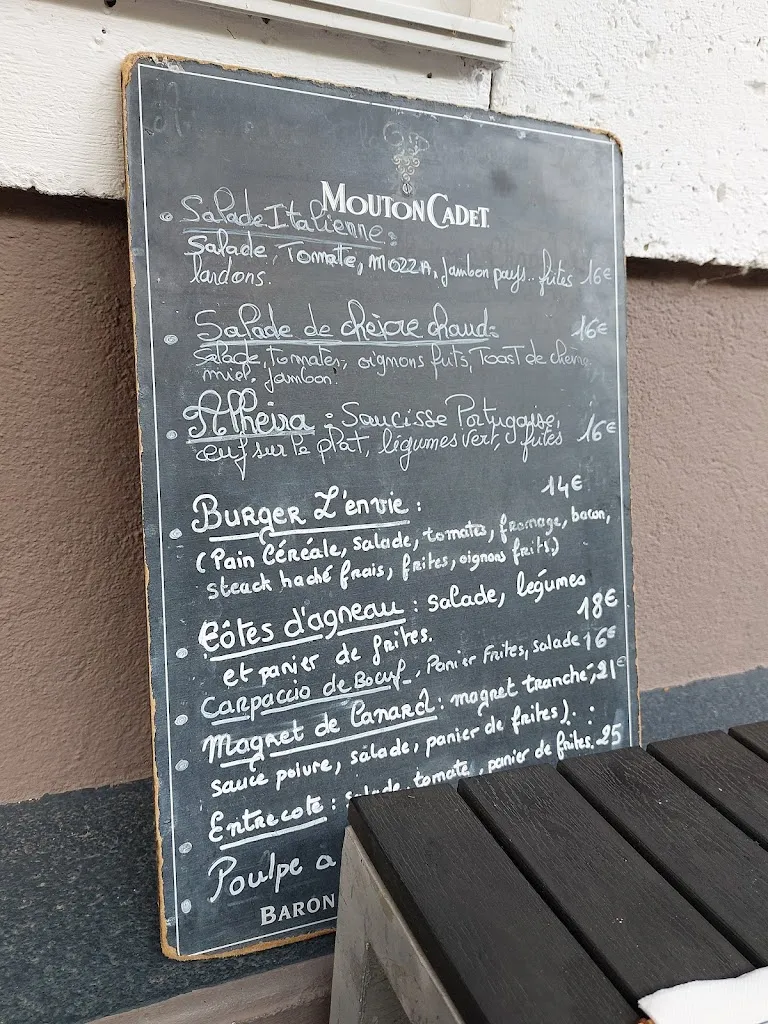 MOUTON CADET
Salade Italienne:
Salade, Tomate, MOZZA, Jambon pays.. frites 16€
lardons.
Salade de chèvre chaud: 16€
Salade, tomates, oignons frits, Toast de chèvre,
miel, jambon.
Alheira : Saucisse Portugaise,
œuf sur le plat, légumes vert, frites 16€
14€
BURGER L'envie :
(Pain Céréale, salade, tomates, fromage, bacon,
steack haché frais, frites, oignons frits)
Côtes d'agneau : salade, légumes
et panier de frites. 18€
Carpaccio de Bœuf, Panier Frites, salade 16€
Magret de Canard : magret tranché, 21€
sauce poivre, salade, panier de frites).
Entrecote : salade, tomate, panier de frites. 25
Poulpe a
BARON